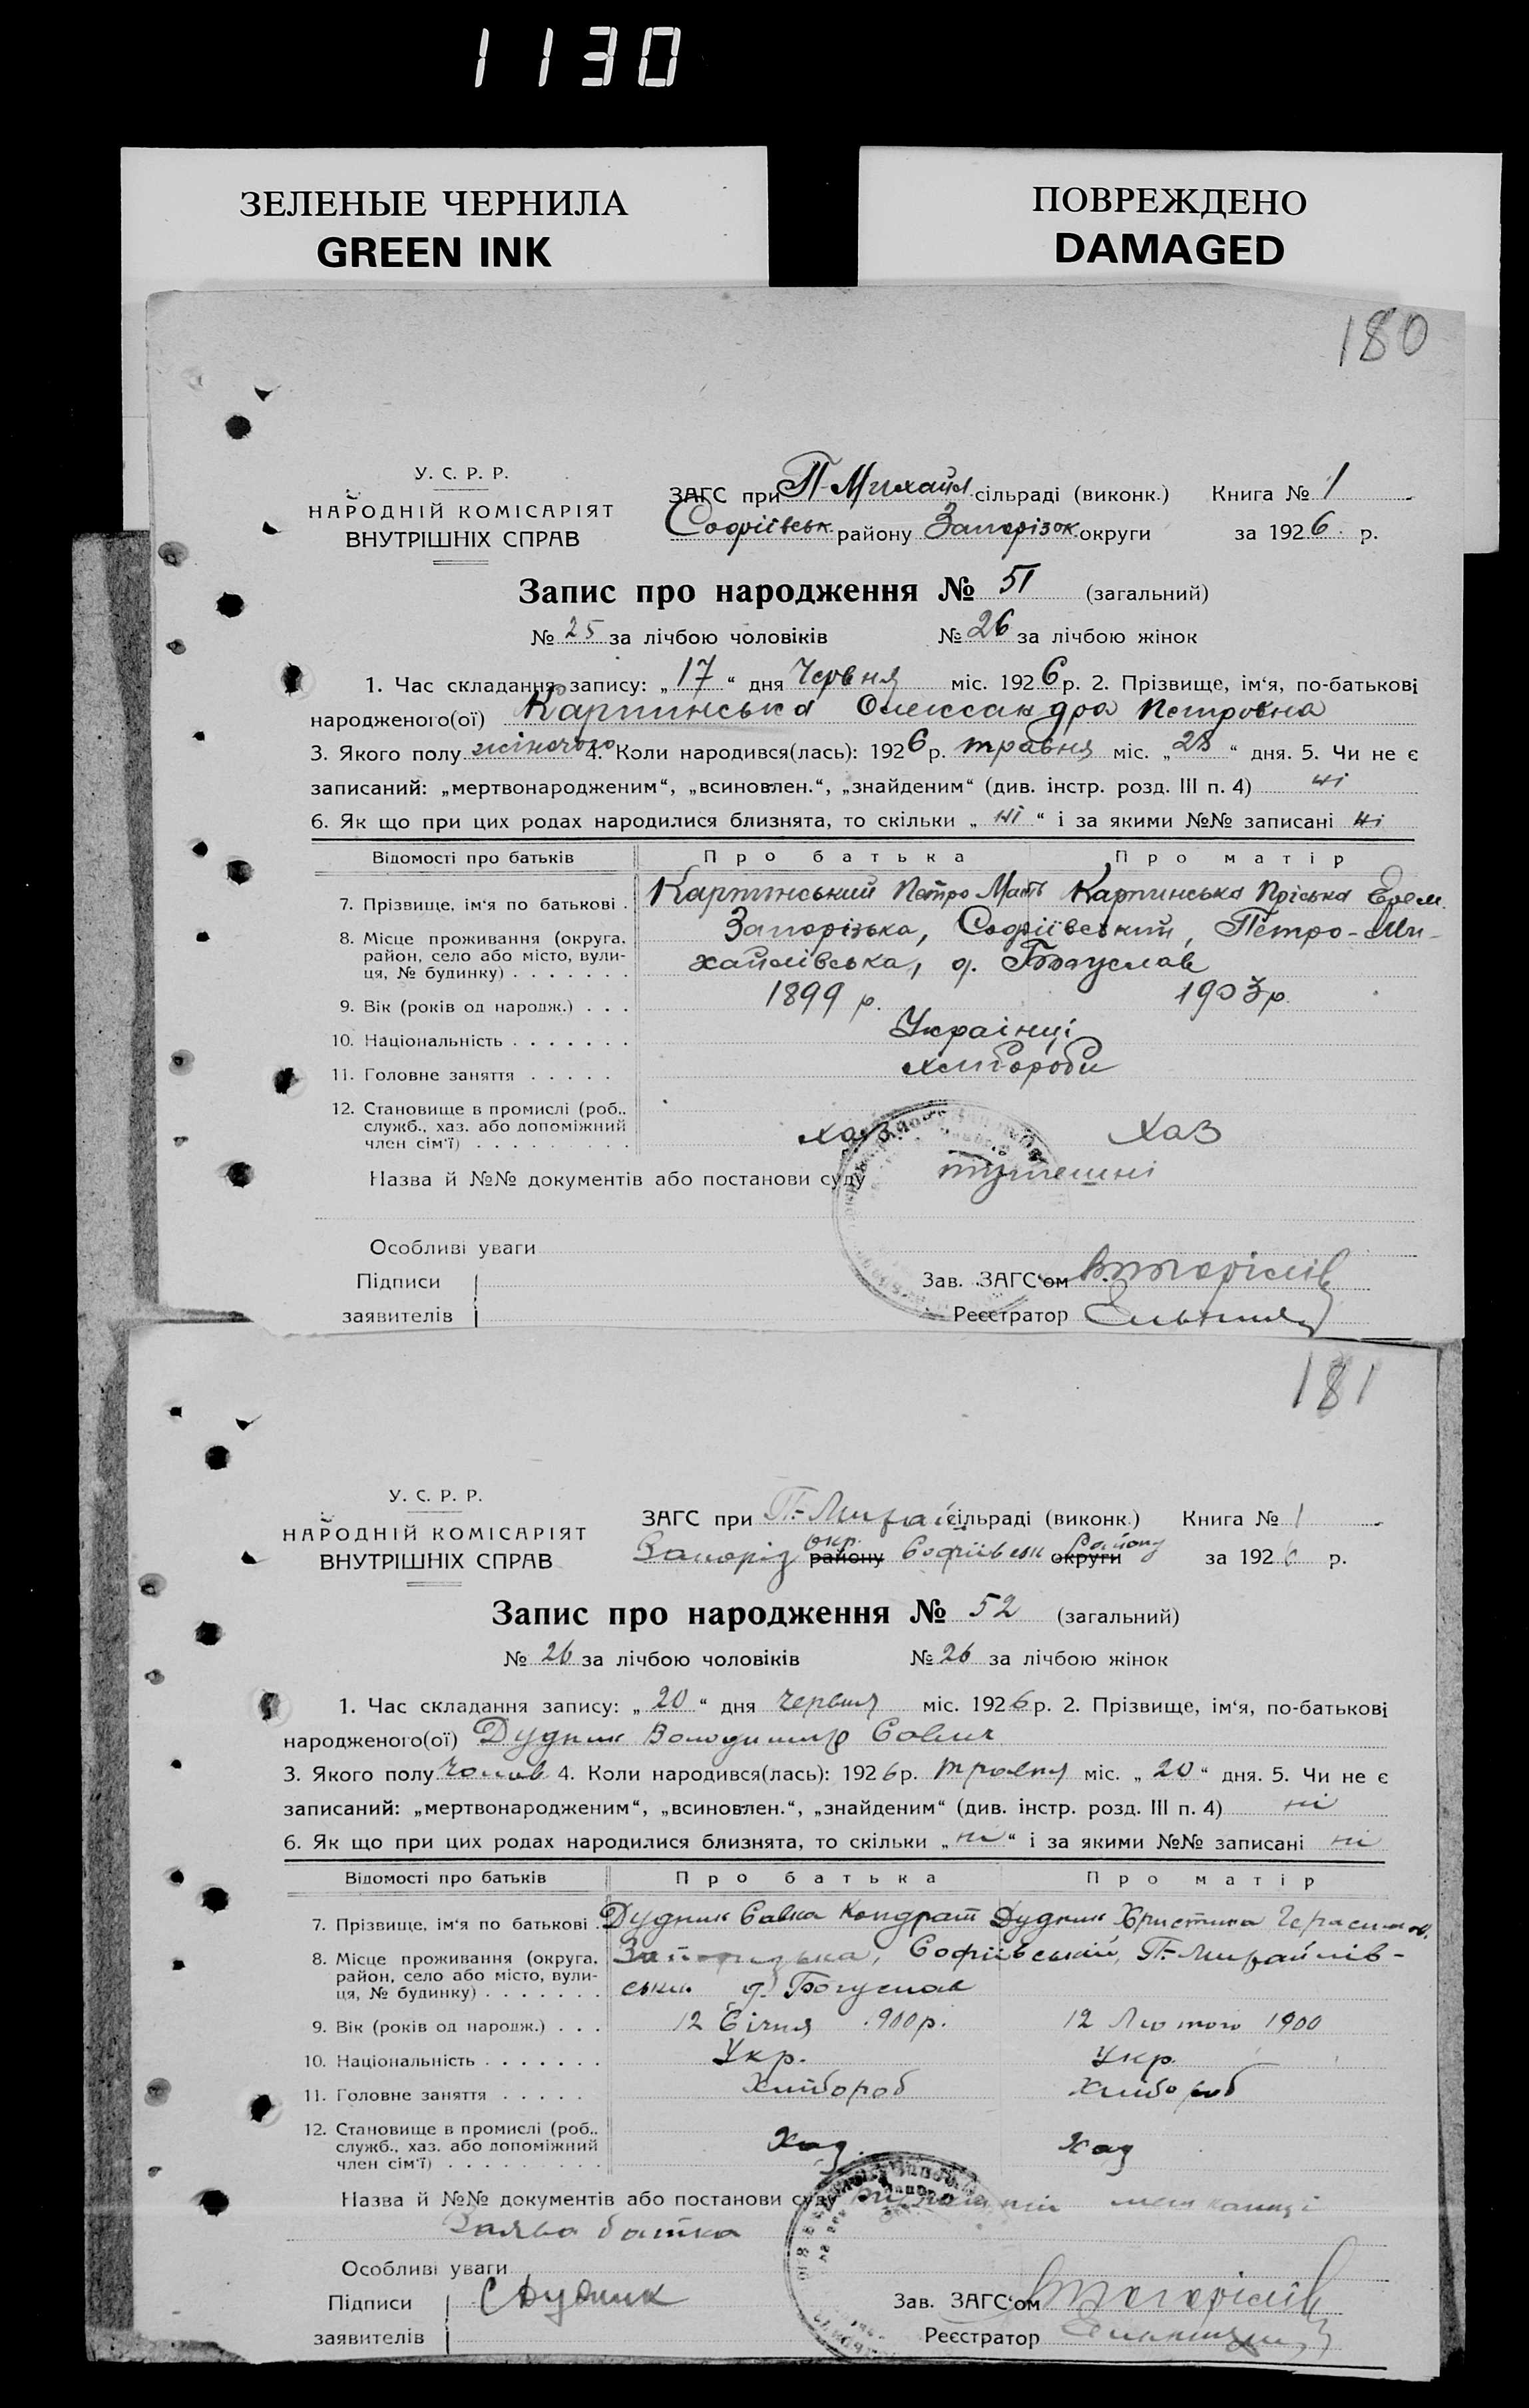 1130
ЗЕЛЕНЫЕ ЧЕРНИЛА
GREEN INK
ПОВРЕЖДЕНО
DAMAGED
180
У. С. Р. Р.
НАРОДНІЙ КОМІСАРІЯТ
ВНУТРІШНІХ СПРАВ
ЗАГС при П-Михайл сільраді (виконк.) Книга № 1
Софіївськ. району Запорізок округи за 1926 р.
Запис про народження № 51 (загальний)
№ 25 за лічбою чоловіків № 26 за лічбою жінок
1. Час складання запису: „17“ дня Червня міс. 1926 р. 2. Прізвище, ім‘я, по-батькові
народженого(ої) Карпинська Олександра Петровна
3. Якого полу жіночого 4. Коли народився(лась): 1926 р. травня міс. „28“ дня. 5. Чи не є
записаний: „мертвонародженим“, „всиновлен.“, „знайденим“ (див. інстр. розд. III п. 4) ні
6. Як що при цих родах народилися близнята, то скільки „ні“ і за якими №№ записані ні
Відомості про батьків Про батька Про матір
7. Прізвище, ім‘я по батькові . Карпинський Петро Мать Карпинська Пріська Ерем.
8. Місце проживання (округа, район, село або місто, вулиця, № будинку) . . . . . . . Запорізька, Софіївський, Петро-Ми-
хайлівська, д. Богуслав
9. Вік (років од народж.) . . . 1899 р. 1903 р.
10. Національність . . . . . . . Українці
11. Головне заняття . . . . . хлібороби
12. Становище в промислі (роб.,
служб., хаз. або допоміжний
член сім‘ї) . . . . . . . . . хаз. хаз
Назва й №№ документів або постанови суду тутешні
Особливі уваги
Підписи
заявителів
Зав. ЗАГС‘ом
Реєстратор
181
У. С. Р. Р.
НАРОДНІЙ КОМІСАРІЯТ
ВНУТРІШНІХ СПРАВ
ЗАГС при П.-Михай сільраді (виконк.) Книга № 1
Запоріз району окр. Софіївськ округи Району за 1926 р.
Запис про народження № 52 (загальний)
№ 26 за лічбою чоловіків № 26 за лічбою жінок
1. Час складання запису: „20“ дня червня міс. 1926 р. 2. Прізвище, ім‘я, по-батькові
народженого(ої) Дудник Володимир Савич
3. Якого полу Чолов 4. Коли народився(лась): 1926 р. травня міс. „20“ дня. 5. Чи не є
записаний: „мертвонародженим“, „всиновлен.“, „знайденим“ (див. інстр. розд. III п. 4) ні
6. Як що при цих родах народилися близнята, то скільки „ні“ і за якими №№ записані ні
Відомості про батьків Про батька Про матір
7. Прізвище, ім‘я по батькові . Дудник Савка Кондрат Дудник Христина Герасимов.
8. Місце проживання (округа,
район, село або місто, вули-
ця, № будинку) . . . . . . . Запорізька, Софіївський, П.-Михайлів-
ськ. д. Богуслав
9. Вік (років од народж.) . . . 12 Січня 1900 р. 12 Лютого 1900
10. Національність . . . . . . . Укр. Укр.
11. Головне заняття . . . . . Хлібороб Хлібороб
12. Становище в промислі (роб.,
служб., хаз. або допоміжний
член сім‘ї) . . . . . . . . . Хаз. Хаз
Назва й №№ документів або постанови суду мешканці
Заява батька
Особливі уваги
Підписи СДудник
заявителів
Зав. ЗАГС‘ом
Реєстратор